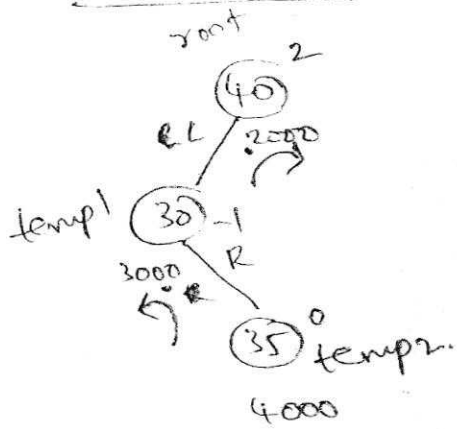 root
40 2
L 2000
temp1 30 -1
R
3000
35 0
temp2.
4000